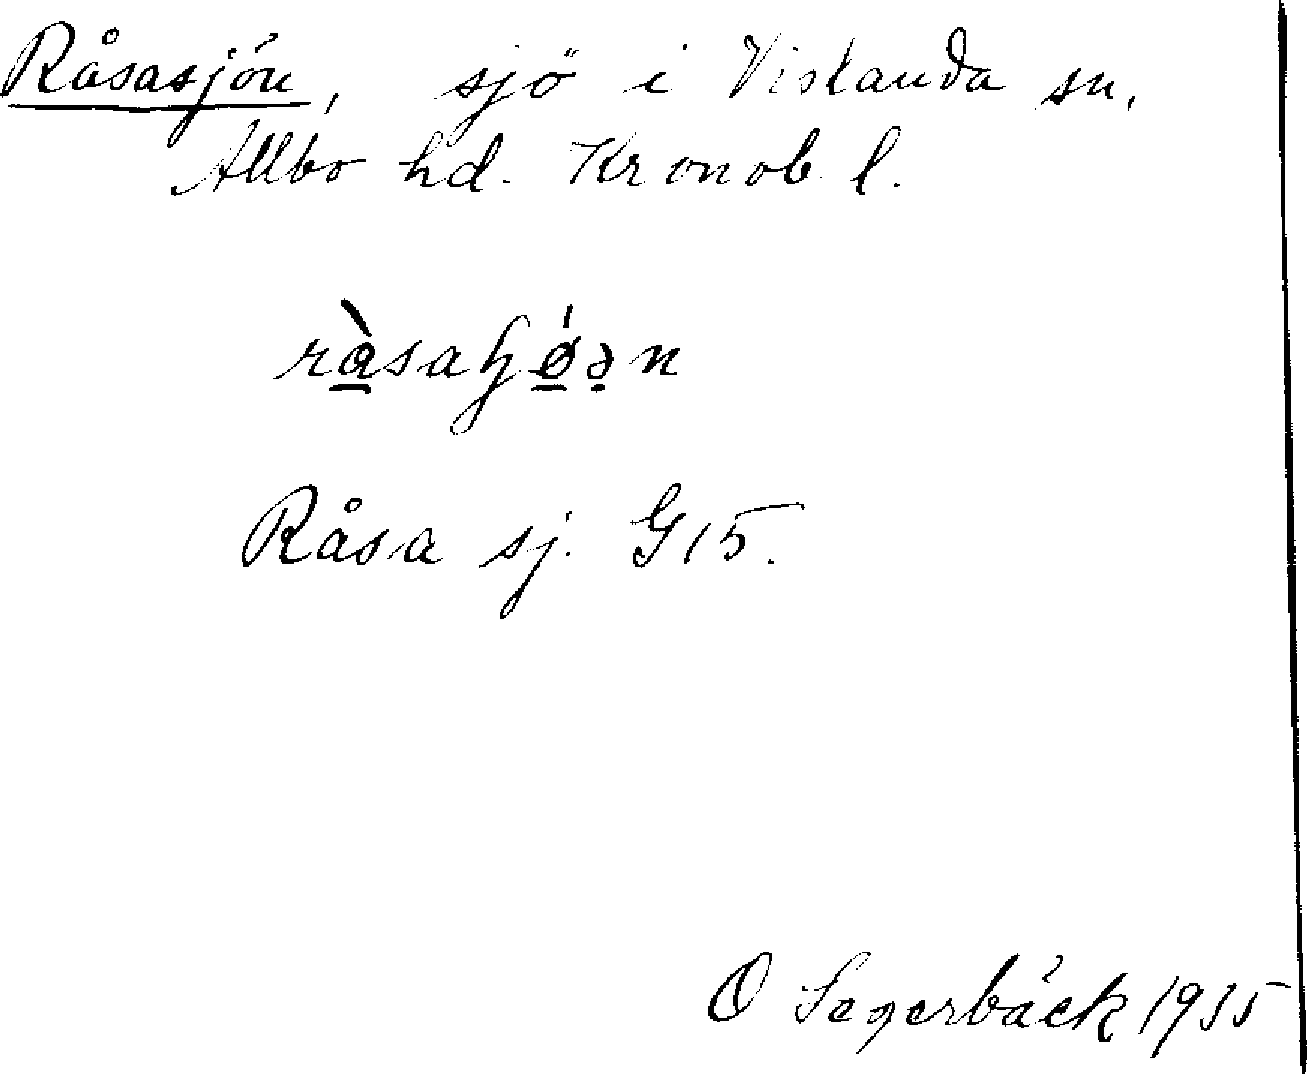 Råsasjön, sjö i Vislanda sn,
Allbo hd. Kronob l.
Råsa sj. G15.
O Segerbäck 1935